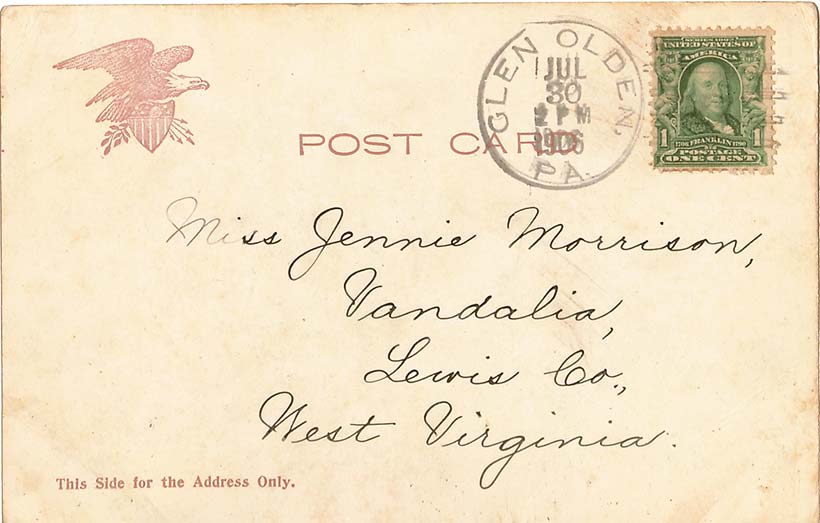 GLEN OLDEN,
JUL
30
2 PM
1906
PA.
SERIES 1902
UNITED STATES OF
AMERICA
1 1706 FRANKLIN 1790 1
POSTAGE
ONE CENT
POST CARD
Miss Jennie Morrison,
Vandalia,
Lewis Co.,
West Virginia.
This Side for the Address Only.